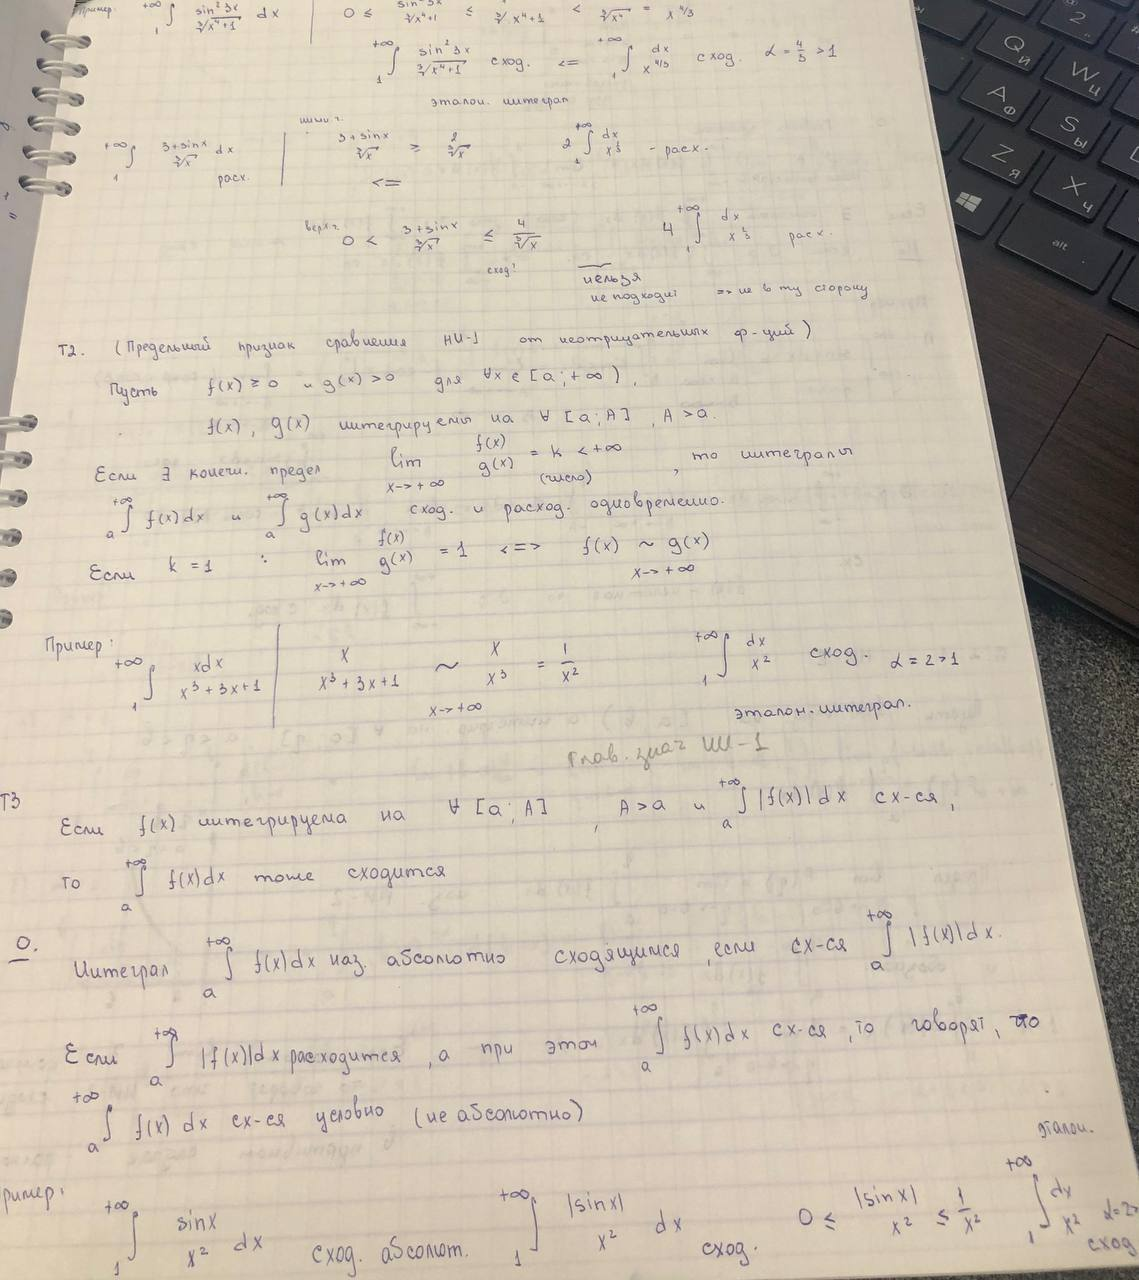 Пример: ∫₁^{+∞} sin²3x / ∛(x⁴+1) dx | 0 ≤ sin²3x / ∛(x⁴+1) ≤ 1 / ∛(x⁴+1) < 1 / ∛(x⁴) = 1 / x^{4/3}
∫₁^{+∞} sin²3x / ∛(x⁴+1) сход. <= ∫₁^{+∞} dx / x^{4/3} сход. α = 4/3 > 1
эталон. интеграл
∫₁^{+∞} (3+sinx) / ∛x dx расх. | нижн: (3+sinx) / ∛x ≥ 2 / ∛x 2 ∫₁^{+∞} dx / x^{1/3} - расх.
<=
верхн: 0 < (3+sinx) / ∛x ≤ 4 / ∛x 4 ∫₁^{+∞} dx / x^{1/3} расх.
сход? нельзя
не подходит => не в ту сторону
T2. (Предельный признак сравнения НИ-1 от неотрицательных ф-ций)
Пусть f(x) ≥ 0 и g(x) > 0 для ∀x ∈ [a; +∞),
f(x), g(x) интегрируемы на ∀ [a; A], A > a.
Если ∃ конечн. предел lim_{x→+∞} f(x)/g(x) = k < +∞ (число), то интегралы
∫ₐ^{+∞} f(x)dx и ∫ₐ^{+∞} g(x)dx сход. и расход. одновременно.
Если k = 1 : lim_{x→+∞} f(x)/g(x) = 1 <=> f(x) ~ g(x) x→+∞
Пример: ∫₁^{+∞} xdx / (x³+3x+1) | x / (x³+3x+1) ~ x / x³ = 1 / x² x→+∞ ∫₁^{+∞} dx / x² сход. α = 2 > 1
эталон. интеграл.
Глав. знач НИ-1
T3
Если f(x) интегрируема на ∀ [a; A], A > a и ∫ₐ^{+∞} |f(x)|dx сх-ся,
то ∫ₐ^{+∞} f(x)dx тоже сходится
О.
Интеграл ∫ₐ^{+∞} f(x)dx наз. абсолютно сходящимся, если сх-ся ∫ₐ^{+∞} |f(x)|dx.
Если ∫ₐ^{+∞} |f(x)|dx расходится, а при этом ∫ₐ^{+∞} f(x)dx сх-ся, то говорят, что
∫ₐ^{+∞} f(x) dx сх-ся условно (не абсолютно)
Пример: ∫₁^{+∞} sinx / x² dx сход. абсолют. ∫₁^{+∞} |sinx| / x² dx сход. 0 ≤ |sinx| / x² ≤ 1 / x² эталон. ∫₁^{+∞} dx / x² α=2> сход
Q Й
W Ц
A Ф
S Ы
Z Я
X Ч
@ 2 "
alt